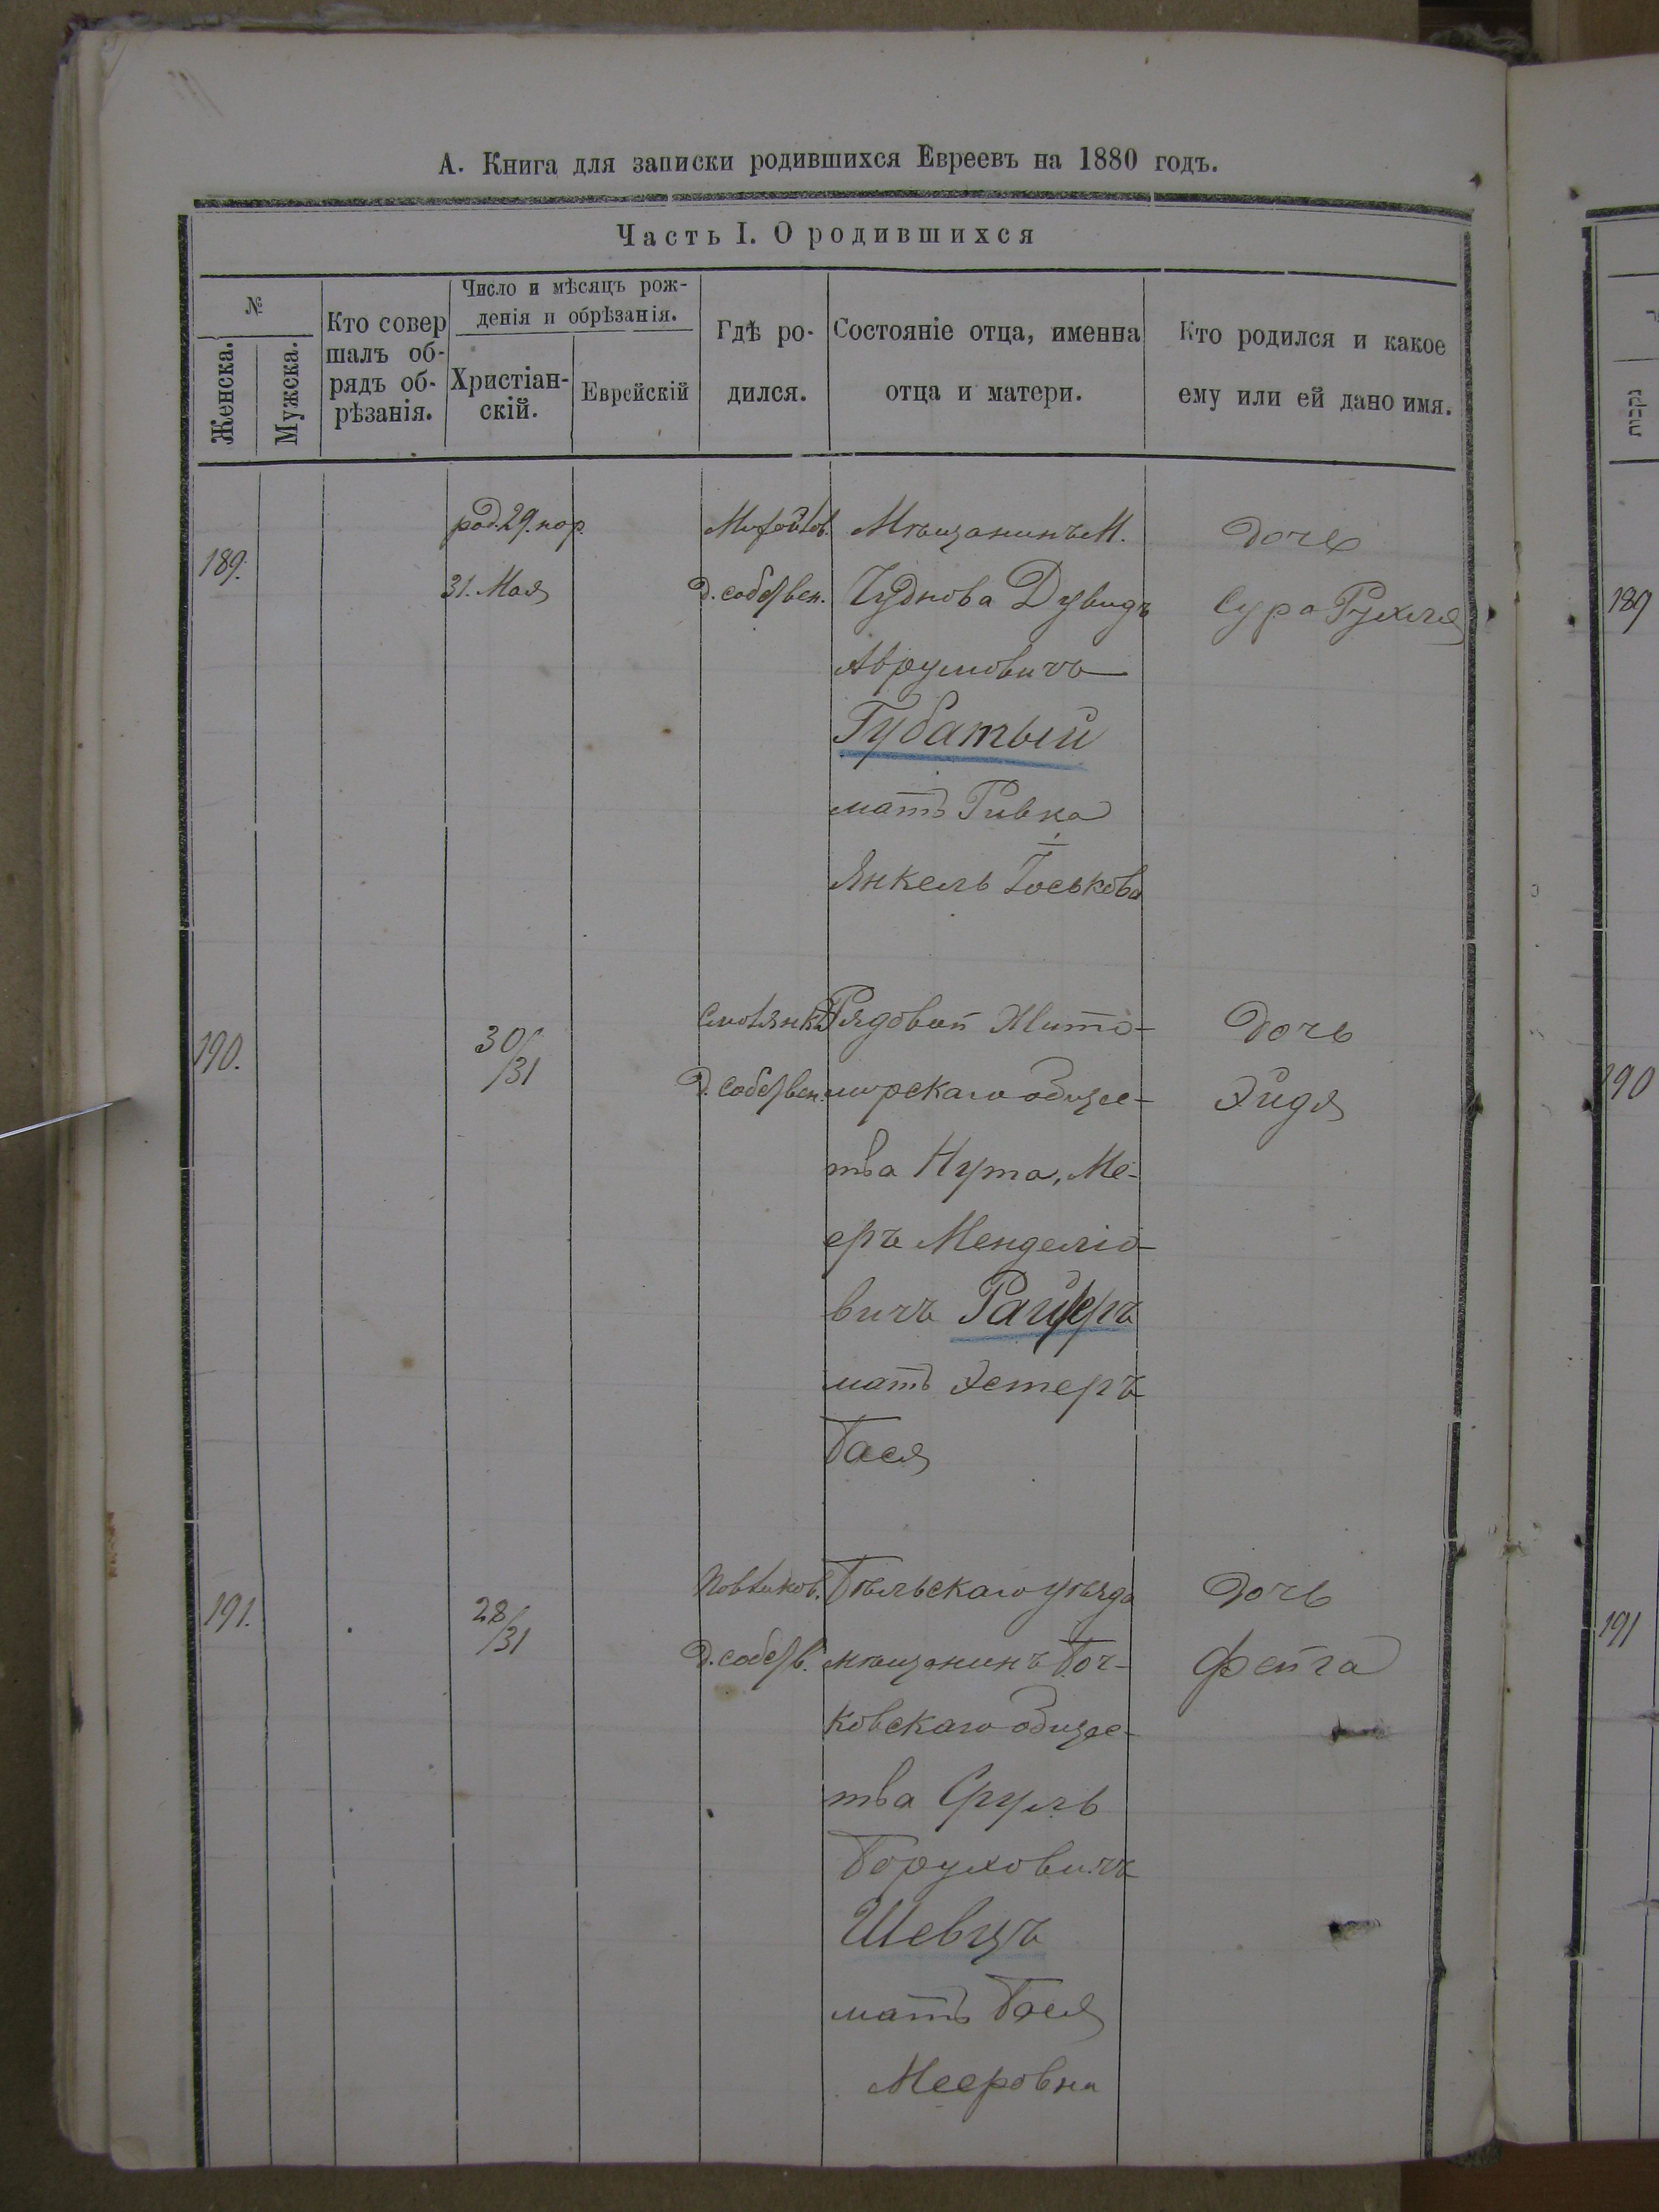 А. Книга для записки родившихся Евреевъ на 1880 годъ.
Часть I. О родившихся
№
Женска.
Мужска.
Кто совер
шалъ об-
рядъ об-
рѣзанія.
Число и мѣсяцъ рож-
денія и обрѣзанія.
Христіан-
скій.
Еврейскій
Гдѣ ро-
дился.
Состояніе отца, именна
отца и матери.
Кто родился и какое
ему или ей дано имя.
189.
род. 29. нар.
31. Мая
д. собствен.
Мѣщанинъ М.
Чуднова Дувидъ
Аврумовичъ
Губатый
мать Ривка
Янкель Іоськова
дочь
Сура Рухля
190.
30/31
Смолянка
д. собствен.
Рядовой Жито-
мирскаго обще-
тва Нута, Ме-
еръ Менделіо-
вичъ Райберъ
мать Эстеръ
Бася
дочь
Эйдя
191.
28/31
д. собств.
Бѣльскаго уѣзда
мѣщанинъ Боч-
ковскаго обще-
тва Сруль
Боруховичъ
Шевцъ
мать Бася
Мееровна
дочь
Фейга
נקבות
189
190
191